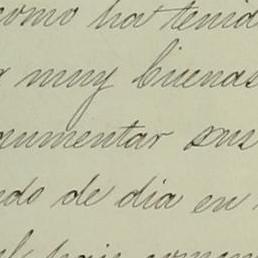 como ha tenid
muy buenas
umentar sus
ndo de dia en